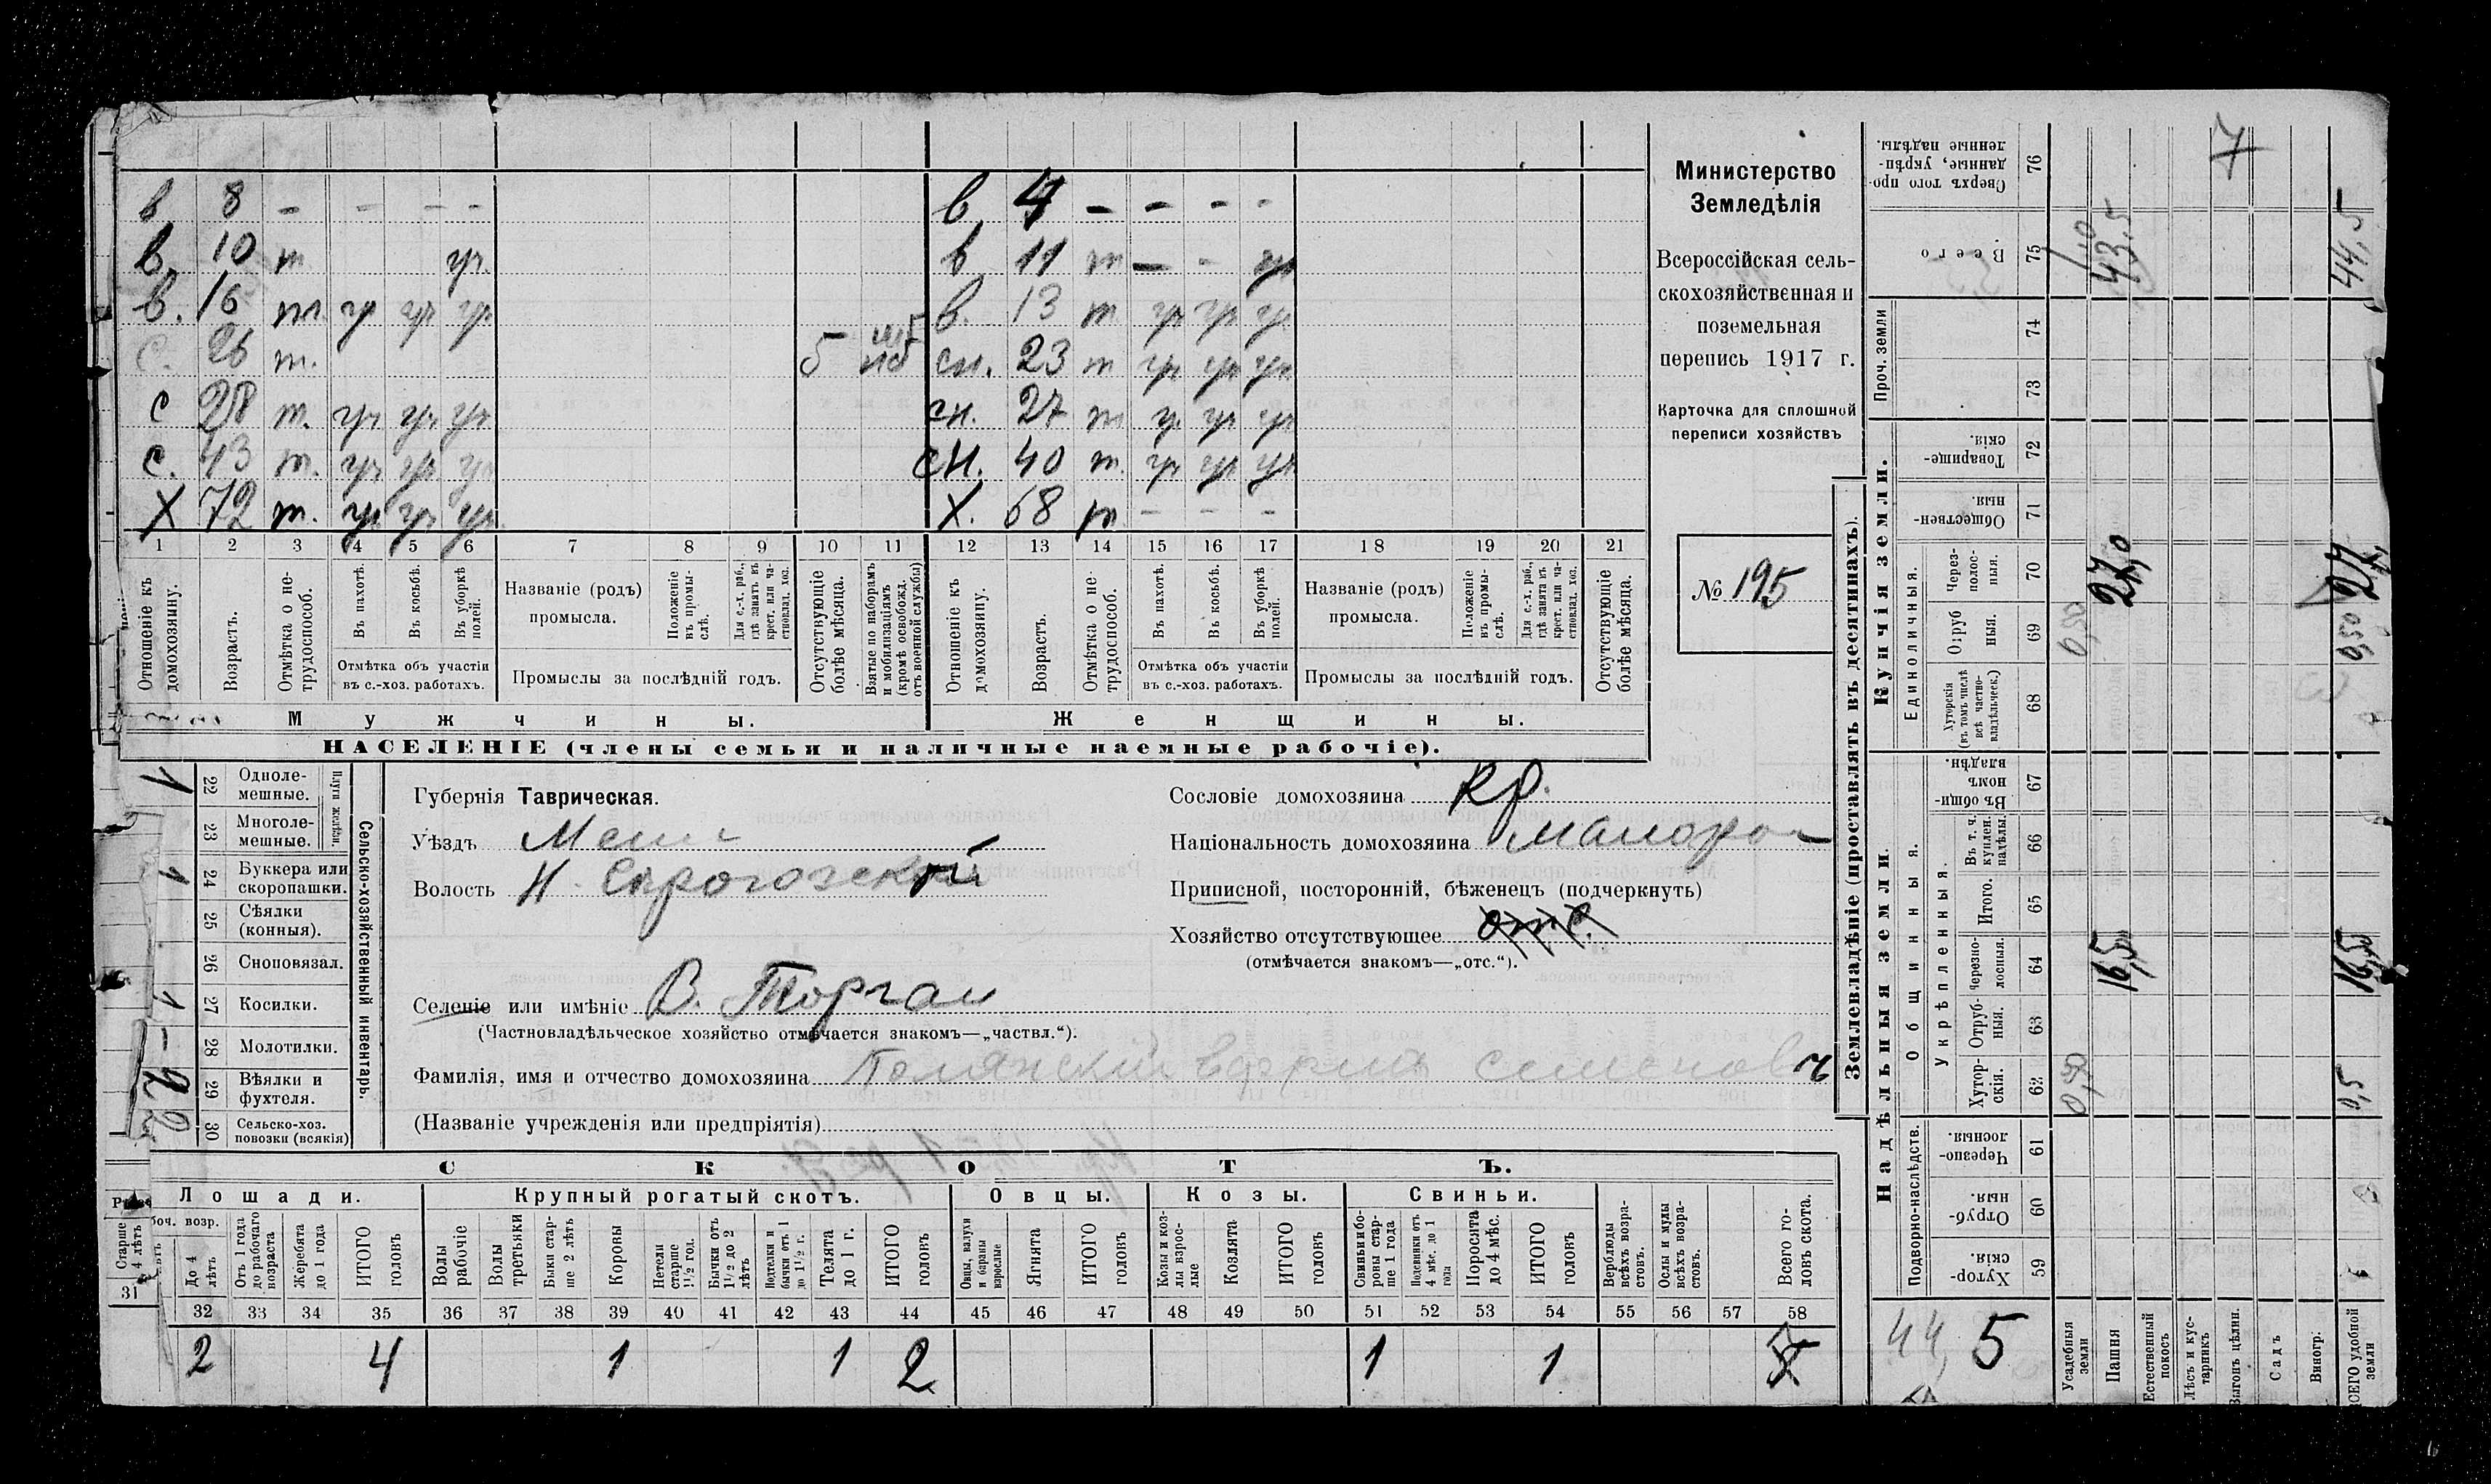 в 8 – – – –
в. 10 т ур.
в. 16 т. ур ур ур
с. 26 т. 5
с 28 т. ур ур ур
с. 43 т. ур ур ур
х 72 т. ур ур ур
в 4 – – – –
в 11 т – – ур
в. 13 т ур ур ур
сн. 23 т ур ур ур
сн. 27 т ур ур ур
сн. 40 т. ур ур ур
х. 68 т – – –
1 2 3 4 5 6 7 8 9 10 11 12 13 14 15 16 17 18 19 20 21
Отношеніе къ домохозяину.
Возрастъ.
Отмѣтка о нетрудоспособ.
Въ пахотѣ.
Въ косьбѣ.
Въ уборкѣ полей.
Отмѣтка объ участіи
въ с.-хоз. работахъ.
Названіе (родъ)
промысла.
Положеніе въ промыслѣ.
Для с.-х. раб., гдѣ занятъ въ крест. или частновлад. хоз.
Промыслы за послѣдній годъ.
Отсутствующіе болѣе мѣсяца.
Взятые по наборамъ и мобилизаціямъ (кромѣ освобожд. отъ военной службы)
Отношеніе къ домохозяину.
Возрастъ.
Отмѣтка о нетрудоспособ.
Въ пахотѣ.
Въ косьбѣ.
Въ уборкѣ полей.
Отмѣтка объ участіи
въ с.-хоз. работахъ.
Названіе (родъ)
промысла.
Положеніе въ промыслѣ.
Для с.-х. раб., гдѣ занятъ въ крест. или частновлад. хоз.
Промыслы за послѣдній годъ.
Отсутствующіе болѣе мѣсяца.
Мужчины.
Женщины.
НАСЕЛЕНІЕ (члены семьи и наличные наемные рабочіе).
Министерство
Земледѣлія
Всероссійская сель-
скохозяйственная и
поземельная
перепись 1917 г.
Карточка для сплошной
переписи хозяйствъ
№ 195
Сельско-хозяйственный инвентарь.
Плуги желѣзн.
1 22 Одноле-
мешные.
23 Многоле-
мешные.
1 24 Буккера или
скоропашки.
25 Сѣялки
(конныя).
26 Сноповязал.
1 27 Косилки.
– 28 Молотилки.
2 29 Вѣялки и
фухтеля.
2 30 Сельско-хоз.
повозки (всякія)
Губернія Таврическая.
Уѣздъ Мели
Волость Н. Серогозской
Селеніе или имѣніе В. Торгаи
(Частновладѣльческое хозяйство отмѣчается знакомъ—„частвл.“).
Фамилія, имя и отчество домохозяина Семенович
(Названіе учрежденія или предпріятія)
Сословіе домохозяина кр.
Національность домохозяина малорос
Приписной, посторонній, бѣженецъ (подчеркнуть)
Хозяйство отсутствующее отс.
(отмѣчается знакомъ—„отс.“).
СКОТЪ.
Лошади.
Крупный рогатый скотъ.
Овцы.
Козы.
Свиньи.
боч. возр.
Старше 4 лѣтъ
До 4 лѣтъ
Отъ 1 года до рабочаго возраста
Жеребята до 1 года
ИТОГО головъ
Волы рабочіе
Волы третьяки
Быки старше 2 лѣтъ
Коровы
Нетели старше 1½ год.
Бычки отъ 1½ до 2 лѣтъ
Подтелки и бычки отъ 1 до 1½ г.
Телята до 1 г.
ИТОГО головъ
Овцы, валухи и бараны взрослые
Ягнята
ИТОГО головъ
Козы и козлы взрослые
Козлята
ИТОГО головъ
Свиньи и боровы старше 1 года
Подсвинки отъ 4 мѣс. до 1 года
Поросята до 4 мѣс.
ИТОГО головъ
Верблюды всѣхъ возрастовъ.
Ослы и мулы всѣхъ возрастовъ.
Всего головъ скота.
31 32 33 34 35 36 37 38 39 40 41 42 43 44 45 46 47 48 49 50 51 52 53 54 55 56 57 58
2 4 1 1 2 1 1
Землевладѣніе (проставлять въ десятинахъ).
Купчія земли.
Надѣльныя земли.
Сверхъ того проданные, укрѣпленные надѣлы. 76
Всего 75 1,0 43,5 44,5
Проч. земли 74
73
Товарищескія. 72
Общественныя. 71
Единоличныя.
Черезполосныя. 70 27,0
Отрубныя. 69 0,50 0,50
Хуторскія (въ томъ числѣ всѣ частновладѣльческ.) 68
Въ общинномъ владѣн. 67
Общинныя.
Укрѣпленныя.
Въ т. ч. куплен. надѣлы. 66
Итого. 65
Черезполосныя. 64 16,5 16,5
Отрубныя. 63
Хуторскія. 62 0,50 0,5
Подворно-наслѣдств.
Черезполосныя. 61
Отрубныя. 60
Хуторскія. 59
44, 5
Усадебныя земли
Пашня
Естественный покосъ
Лѣсъ и кустарникъ
Выгонъ цѣлин.
Садъ
Виногр.
СЕГО удобной земли
7